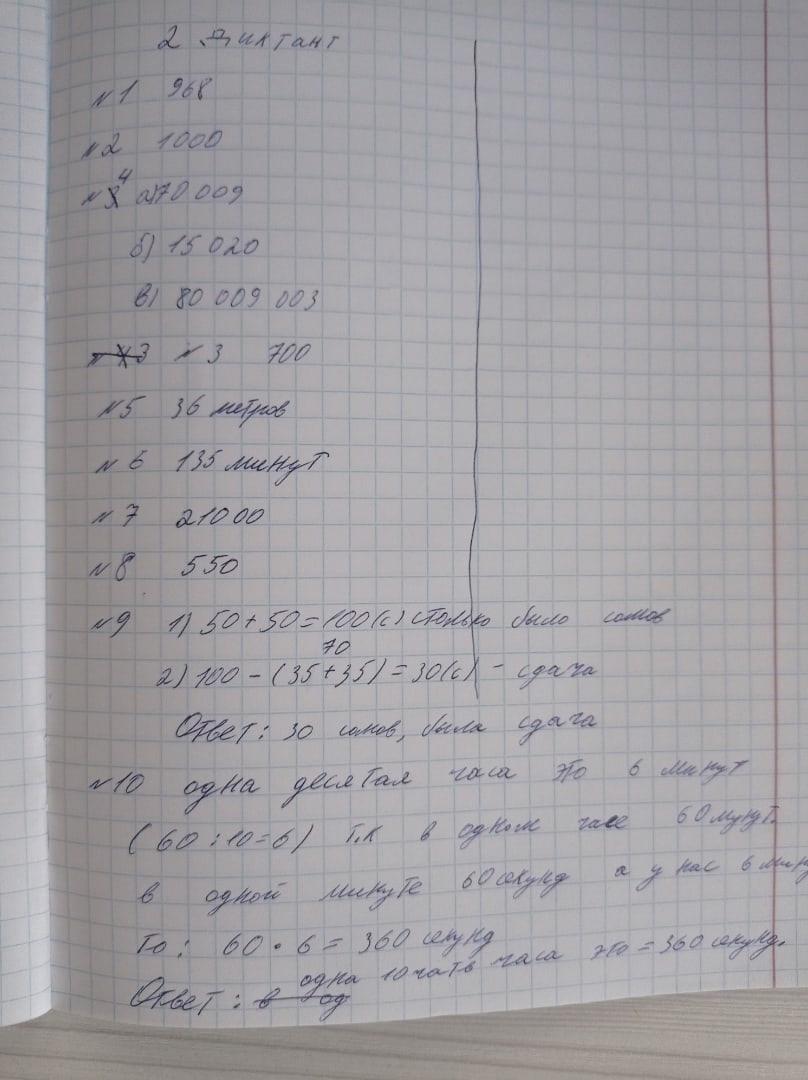 2 Диктант
№1 968
№2 1000
№4 а) 70 009
б) 15 020
в) 80 009 003
№3 700
№5 36 метров
№6 135 минут
№7 21000
№8 550
№9 1) 50+50=100(с) столько было сомов
70
2) 100-(35+35)=30(с) - сдача
Ответ: 30 сомов, была сдача
№10 одна десятая часа это 6 минут
(60:10=6) т.к в одном часе 60 мунут.
в одной минуте 60 секунд а у нас 6 мину
То: 60·6=360 секунд
Ответ: одна 10чать часа это =360 секунд.